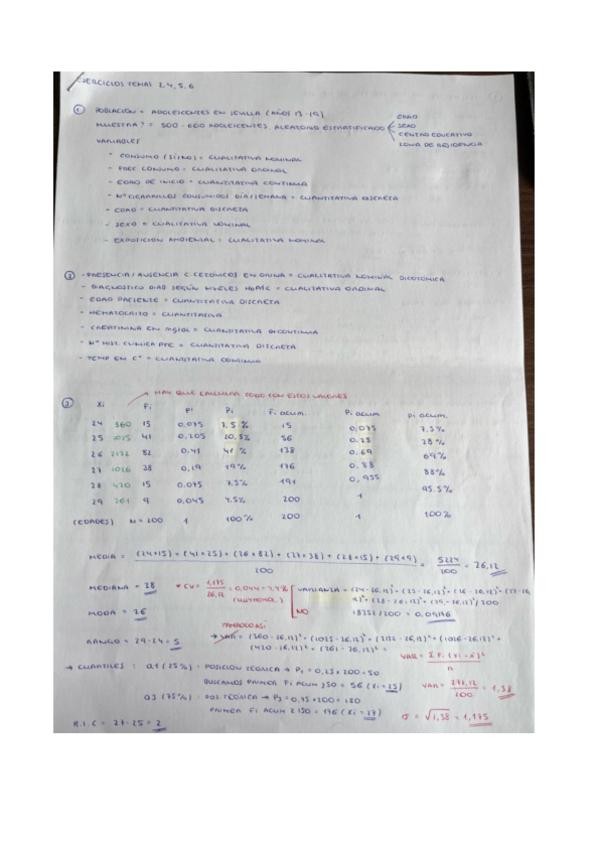 EJERCICIOS TEMAS 2,4,5,6
① POBLACIÓN = ADOLESCENTES EN SEVILLA (AÑOS 13-19)
MUESTRA? = 500-600 ADOLESCENTES ALEATORIO ESTRATIFICADO
EDAD
SEXO
CENTRO EDUCATIVO
ZONA DE RESIDENCIA
VARIABLES
- CONSUMO (SÍ/NO) = CUALITATIVA NOMINAL
- FREC CONSUMO = CUALITATIVA ORDINAL
- EDAD DE INICIO = CUANTITATIVA CONTINUA
- Nº CIGARRILLOS CONSUMIDOS DÍA/SEMANA = CUANTITATIVA DISCRETA
- EDAD = CUANTITATIVA DISCRETA
- SEXO = CUALITATIVA NOMINAL
- EXPOSICIÓN AMBIENTAL = CUALITATIVA NOMINAL
② - PRESENCIA/AUSENCIA C. CETÓNICOS EN ORINA = CUALITATIVA NOMINAL DICOTÓMICA
- DIAGNOSTICO DIAB SEGÚN NIVELES = CUALITATIVA ORDINAL
- EDAD PACIENTE = CUANTITATIVA DISCRETA
- HEMATOCRITO = CUANTITATIVA
- CREATININA EN mg/dL = CUANTITATIVA
- Nº HIST. CLINICA = CUANTITATIVA DISCRETA
- TEMP EN Cº = CUANTITATIVA CONTINUA
③ HAY QUE CALCULAR TODO CON ESTOS VALORES
Xi Fi pi Pi Fi ACUM. Pi ACUM pi ACUM.
24 360 15 0,075 7,5% 15 0,075 7,5%
25 1025 41 0,205 20,5% 56 0,28 28%
26 2132 82 0,41 41% 138 0,69 69%
27 1026 38 0,19 19% 176 0,88 88%
28 420 15 0,075 7,5% 191 0,955 95.5%
29 261 9 0,045 4.5% 200 1
(EDADES) N = 200 1 100% 200 1 100%
MEDIA = (24×15) + (41×25) + (26×82) + (27×38) + (28×15) + (29×9) / 200 = 5224 / 200 = 26,12
MEDIANA = 28 * CV = 1,175 / 26,12 = 0,044 = 4.4% VARIANZA =
MODA = 26 NO
RANGO = 29-24 = 5 → VAR = (360-26,12)² + (1025-26,12)² + (2132-26,12)² + (1026-26,12)² +
(420-26,12)² + (261-26,12)² =
VAR = Σ Fi (xi - x̄)² / n
→ CUARTILES: Q1 (25%) - POSICIÓN TEÓRICA → P1 = 0,25×200 = 50
BUSCAMOS PRIMER Fi ACUM ≥50 = 56 (Xi = 25)
Q3 (75%) - POS TEÓRICA → P3 = 0,75×200 = 150
PRIMER Fi ACUM ≥ 150 = 176 (Xi = 27)
= 1,38
σ = √1,38 = 1,175
R.I.C = 27-25 = 2